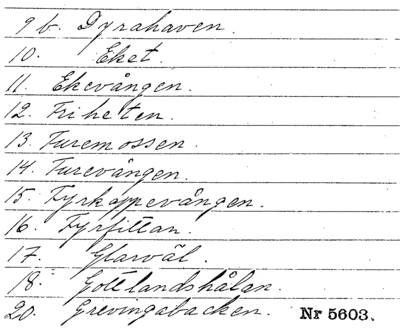 9 b. Dyrahaven.
10. Eket.
11. Ekevången.
12. Friheten.
13. Furemossen.
14. Furevången.
15. Fyrkappevången.
16. Fyrfittan.
17. Glarväl.
18. Gottlandshålan.
20. Grevingabacken. Nr 5603.